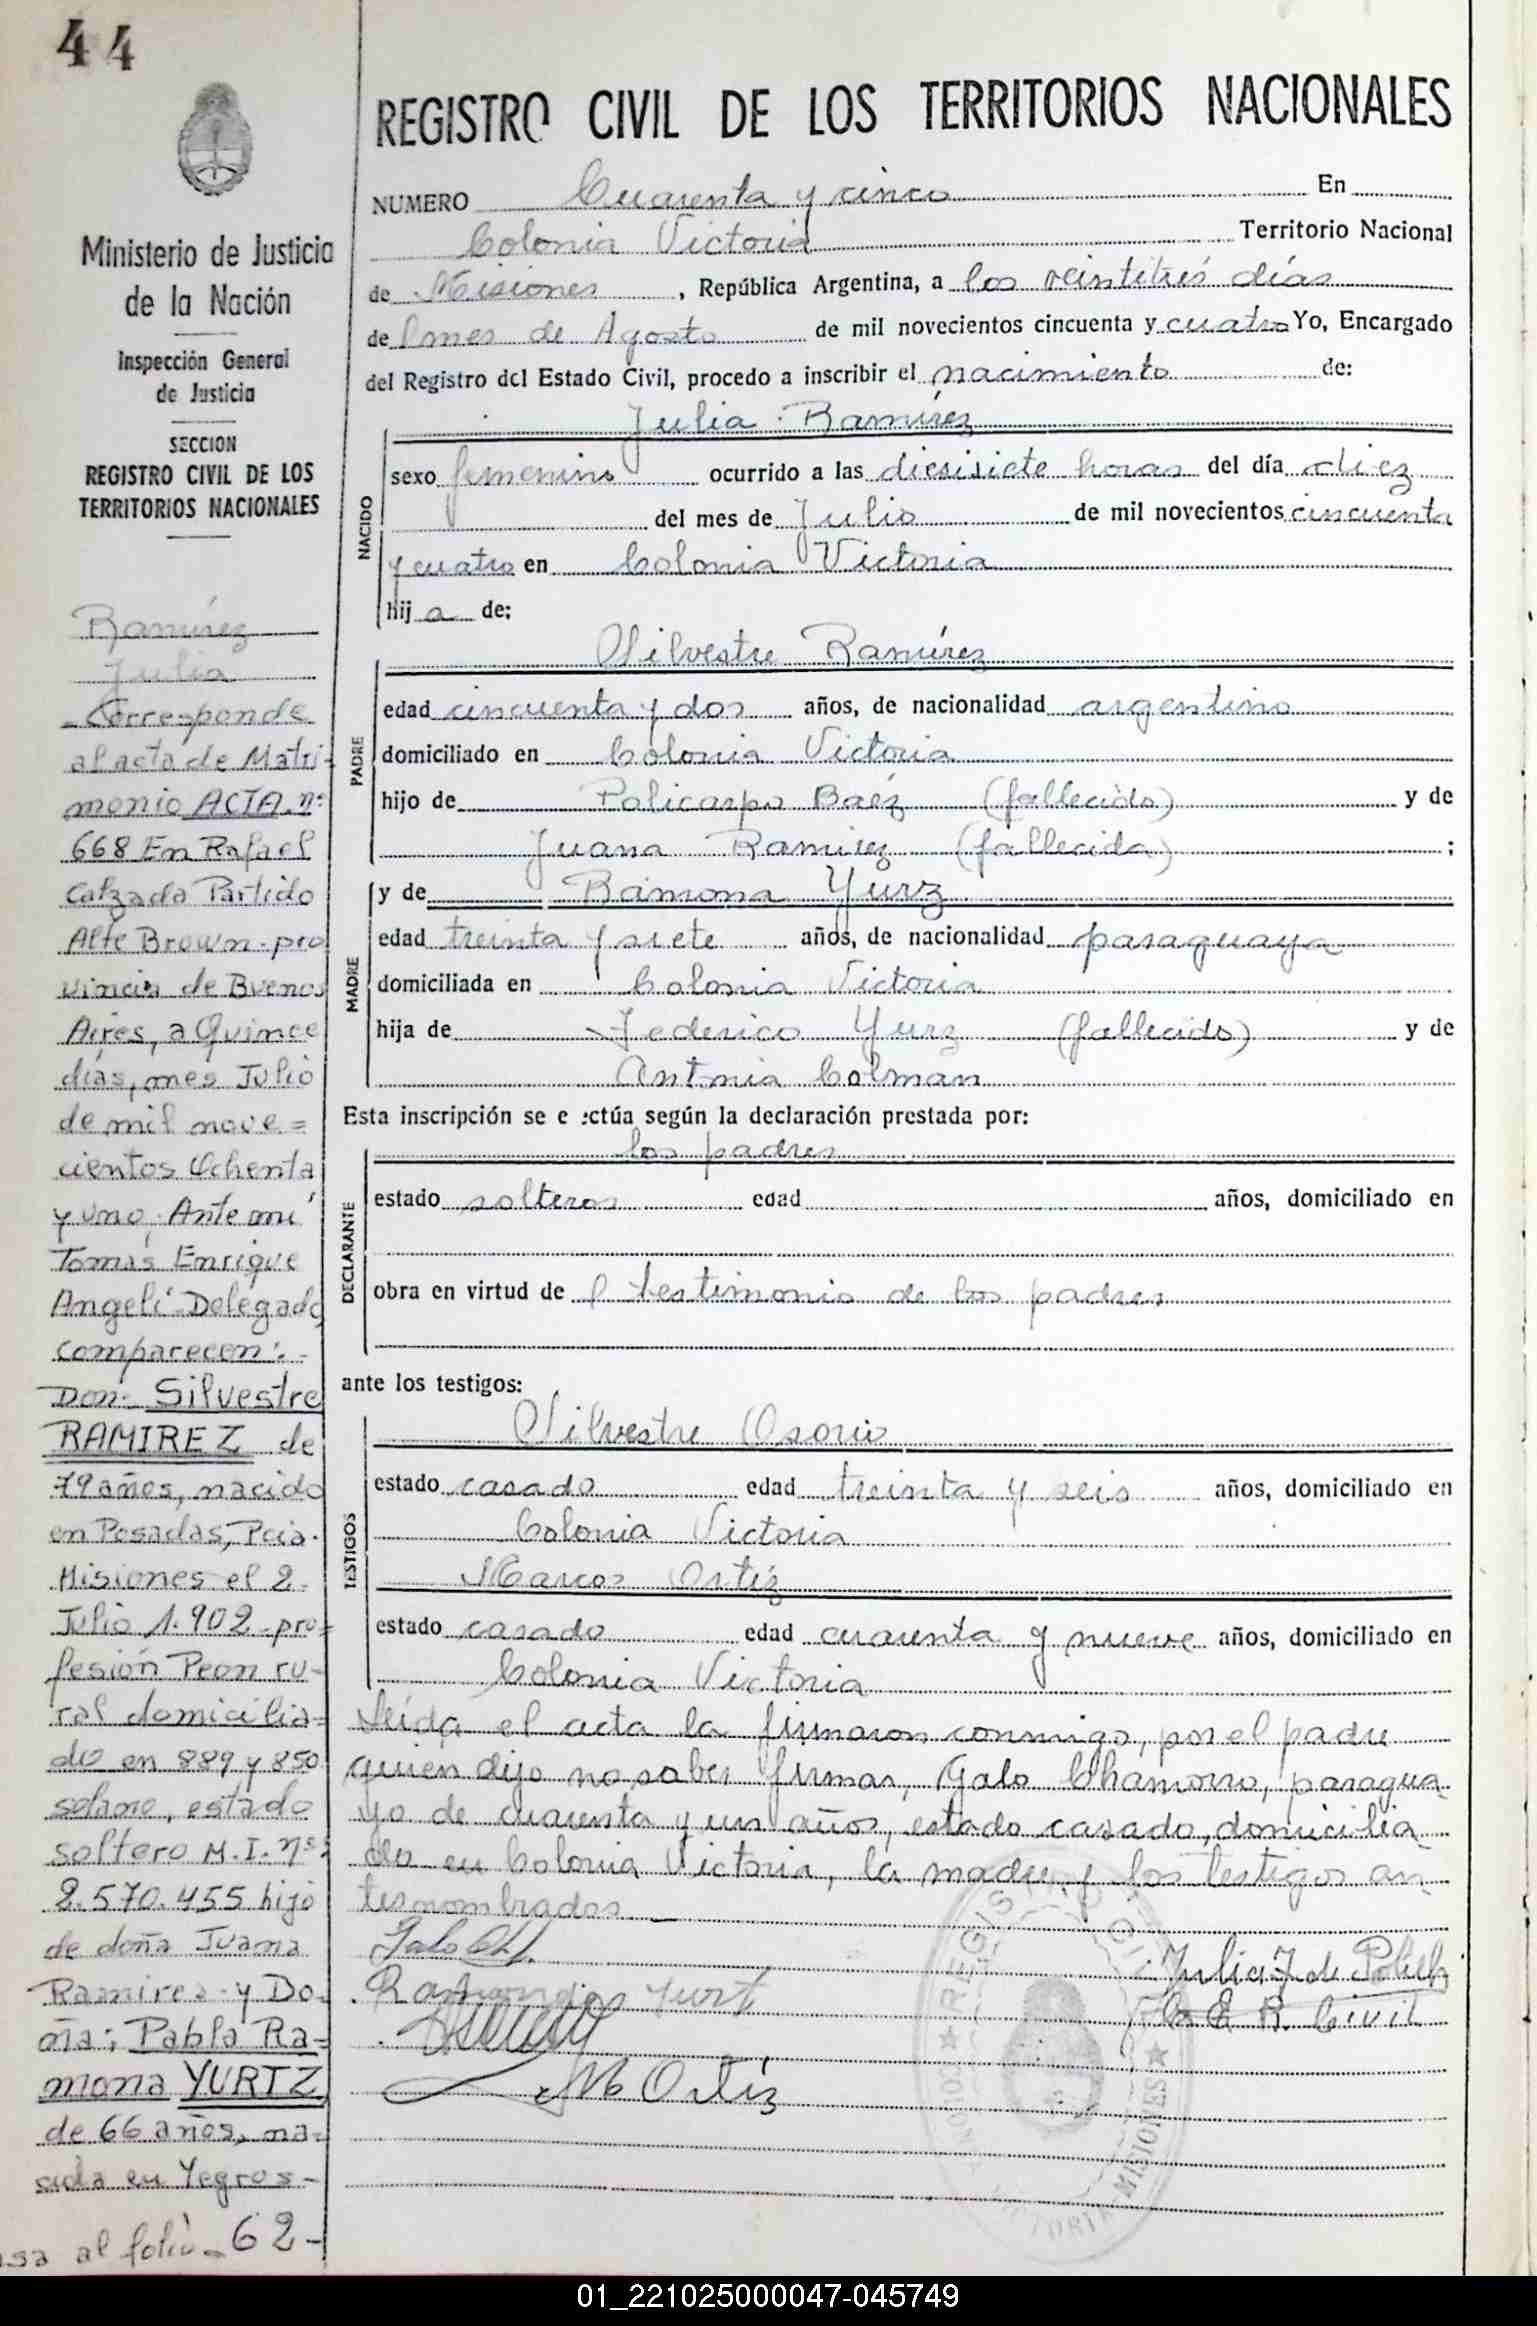 44
Ministerio de Justicia
de la Nación
Inspección General
de Justicia
SECCION
REGISTRO CIVIL DE LOS
TERRITORIOS NACIONALES
Ramírez
Julia
Corresponde
al acta de Matri-
monio ACTA nº
668 En Rafael
Calzada Partido
Alte Brown- pro
vincia de Buenos
Aires, a Quince
días, mes Julio
de mil nove=
cientos Ochenta
y uno, Ante mí
Tomás Enrique
Angelí-Delegado
comparecen:-
Don- Silvestre
RAMIREZ de
79 años, nacido
en Posadas, Pcia.
Misiones el 2-
Julio 1.902-pro=
fesión Peon ru-
ral domicilia=
do en 889 y 850
solano, estado
soltero M.I. nº:
2.570.455 hijo
de doña Juana
Ramirez- y Do-
ña: Pabla Ra-
mona YURTZ
de 66 años, na-
cida en Yegros-
asa al folio- 62-
REGISTRO CIVIL DE LOS TERRITORIOS NACIONALES
NUMERO Cuarenta y cinco En
Colonia Victoria Territorio Nacional
de Misiones, República Argentina, a los veintitrés días
del mes de Agosto de mil novecientos cincuenta y cuatro Yo, Encargado
del Registro del Estado Civil, procedo a inscribir el nacimiento de:
Julia Ramírez
NACIDO
sexo femenino ocurrido a las diesisiete horas del día diez
del mes de Julio de mil novecientos cincuenta
y cuatro en Colonia Victoria
hija de:
Silvestre Ramírez
PADRE
edad cincuenta y dos años, de nacionalidad argentino
domiciliado en Colonia Victoria
hijo de Policarpo Baéz (fallecido) y de
Juana Ramirez (fallecida) ;
y de Ramona Yurz
MADRE
edad treinta y siete años, de nacionalidad paraguaya
domiciliada en Colonia Victoria
hija de Federico Yurz (fallecido) y de
Antonia Colman
Esta inscripción se e ectúa según la declaración prestada por:
los padres
DECLARANTE
estado solteros edad años, domiciliado en
obra en virtud de l testimonio de los padres
ante los testigos:
Silvestre Osorio
TESTIGOS
estado casado edad treinta y seis años, domiciliado en
Colonia Victoria
Marcos Ortíz
estado casado edad cuarenta y nueve años, domiciliado en
Colonia Victoria
Leída el acta la firmaron conmigo, por el padre
quien dijo no saber firmar, Galo Chamorro, paragua-
yo de cuarenta y un años, estado casado, domicilia-
do en Colonia Victoria, la madre y los testigos an-
tesnombrados.
Galo Ch.
Ramona Yurt
M Ortíz
Julia J. de Polich
E. R. Civil
MISIONES
01_221025000047-045749